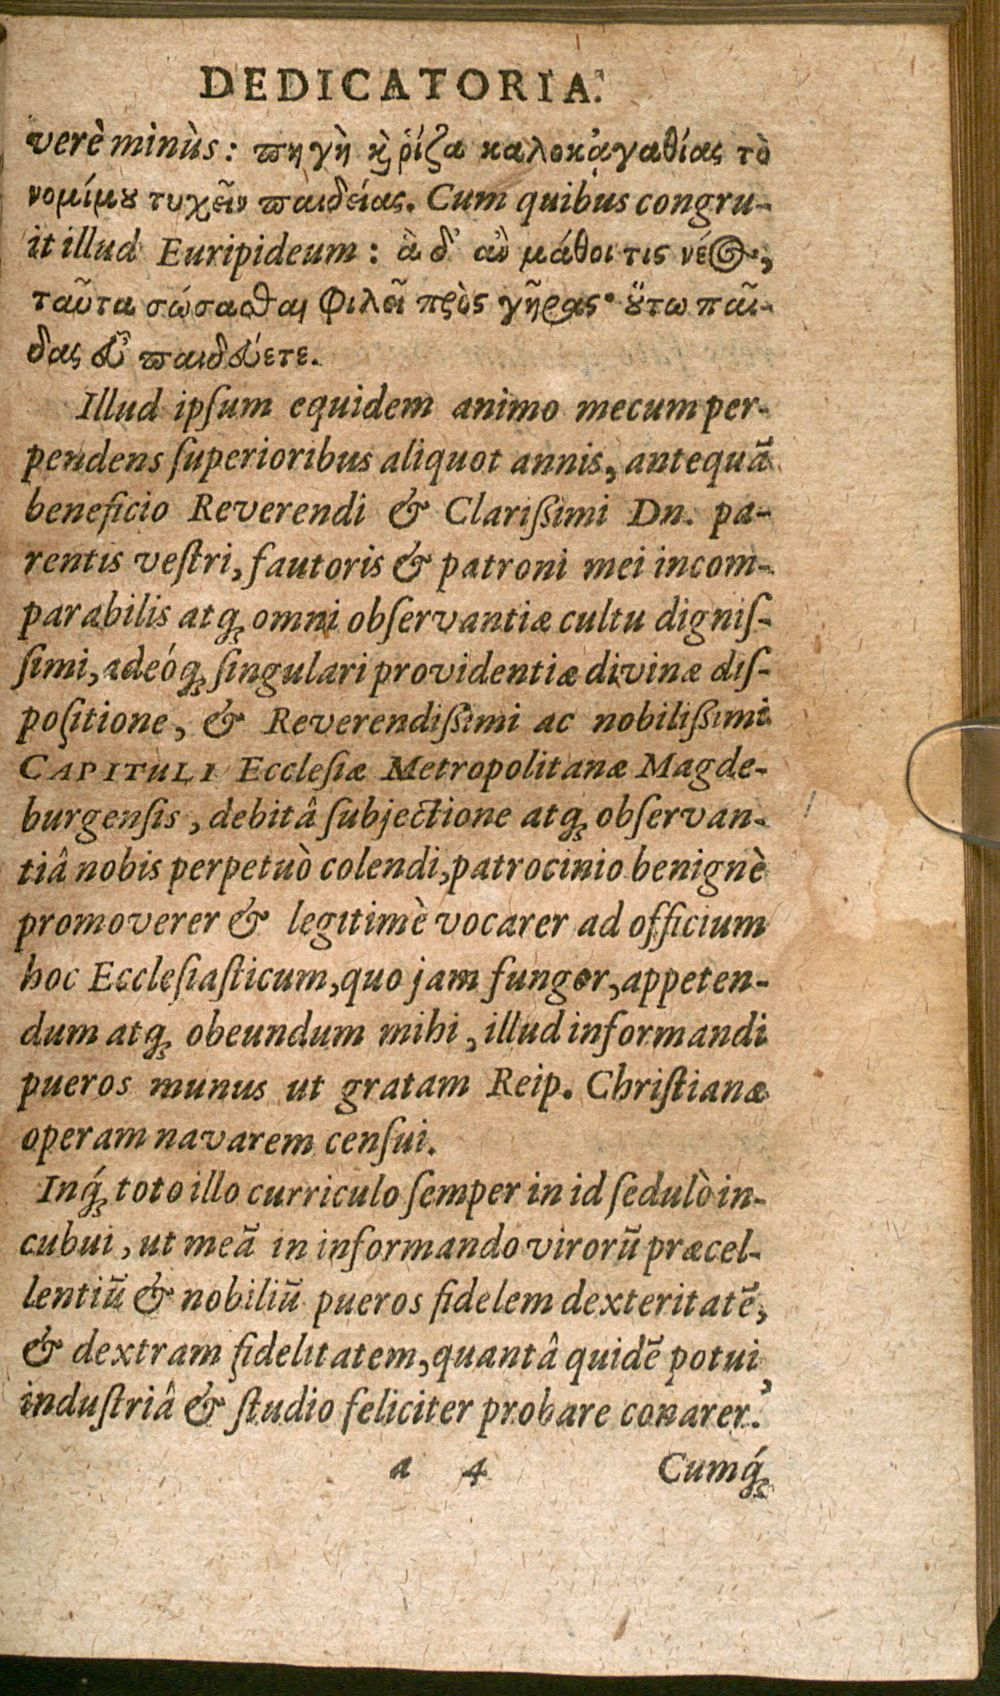 DEDICATORIA.
verè minùs: πηγὴ κ̀ ῥίζα καλοκἀγαθίας τὸ
νομίμȣ τυχεῖν παιδείας. Cum quibus congru-
it illud Euripideum: ἃ δ' ἂν μάθοι τις νέος,
ταῦτα σώσασθαι φιλεῖ πρὸς γῆρας· ȣ̔́τω παῖ-
δας εὖ παιδεύετε.
Illud ipſum equidem animo mecum per-
pendens ſuperioribus aliquot annis, antequā
beneficio Reverendi & Clariſſimi Dn. pa-
rentis veſtri, fautoris & patroni mei incom-
parabilis atq; omni obſervantiæ cultu digniſ-
ſimi, adeóq; ſingulari providentiæ divinæ diſ-
poſitione, & Reverendiſſimi ac nobiliſſimi
CAPITULI Eccleſiæ Metropolitanæ Magde-
burgenſis, debitâ ſubjectione atq; obſervan-
tiâ nobis perpetuò colendi, patrocinio benignè
promoverer & legitimè vocarer ad officium
hoc Eccleſiaſticum, quo jam fungor, appeten-
dum atq; obeundum mihi, illud informandi
pueros munus ut gratam Reip. Chriſtianæ
operam navarem cenſui.
Inq́; toto illo curriculo ſemper in id ſedulò in-
cubui, ut meā in informando virorū præcel-
lentiū & nobiliū pueros fidelem dexteritatē,
& dextram fidelitatem, quantâ quidē potui,
induſtriâ & ſtudio feliciter probare conarer.
a 4 Cumq́;